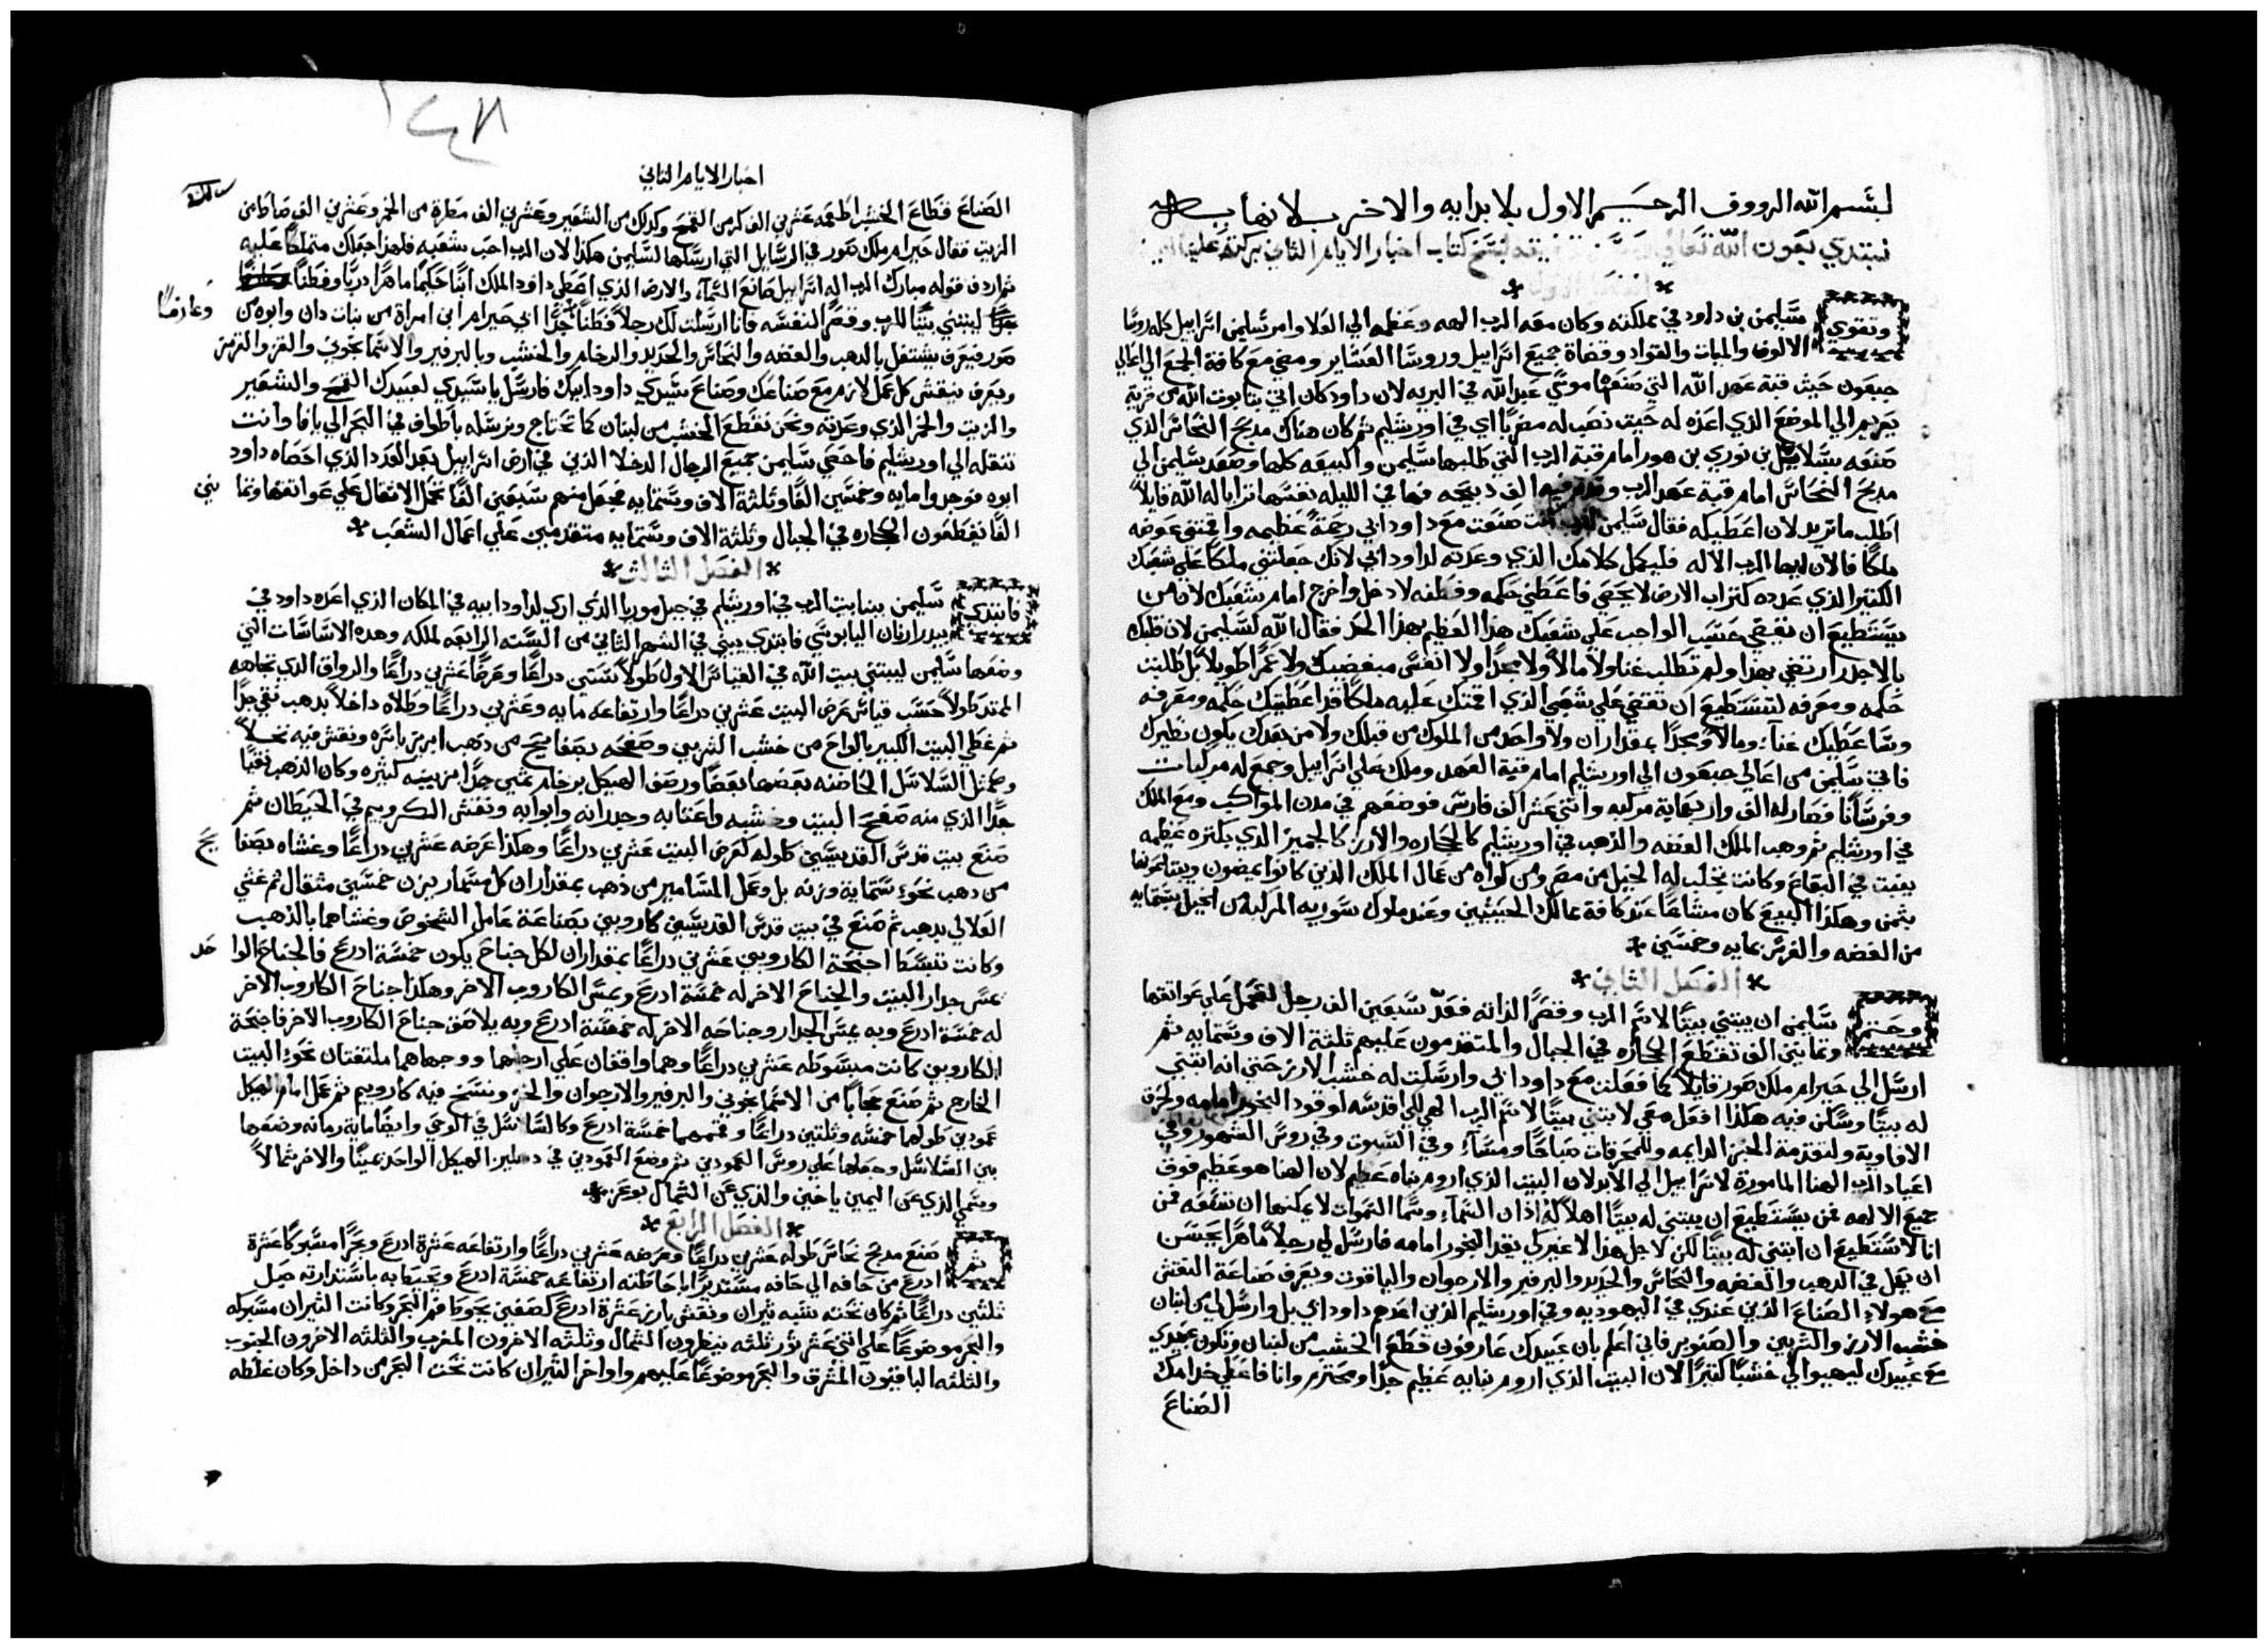 بسم الله الرووف الرحيم الاول بلا بدايه والاخر بلا نهايه
نبتدي بعون الله تعالي بنسخ كتاب اخبار الايام الثاني بركته علينا امين
الفصل الاول
وتقوي سليمن بن داود في مملكته وكان معه الرب الهه وعظمه الي العلا وامر سليمن اسراييل كله روسا
الالوف والميات والقواد وقضاة جميع اسراييل وروسا العشاير ومضي مع كافة الجمع الي اعالي
جبعون حيث قبة عهد الله التي صنعها موسي عبد الله في البريه لان داود كان اتي بتابوت الله من قرية
يعريم الي الموضع الذي اعده له حيث نصب له مضربا اي في اورشليم ثم كان هناك مدبح النحاس الذي
صنعه بسلاييل بن نوري بن هور امام قبة الرب التي طلبها سليمن والبيعه كلها وصعد سليمن الي
مدبح النحاس امام قبة عهد الرب وقدم فيه الف دبيحه فها في الليله نفسها ترايا له الله قايلا
اطلب ما تريد لان اعطيكه فقال سليمن للرب انت صنعت مع داود ابي رحمة عظيمه واقمتني عوضه
ملكا فالان ايها الرب الاله فليكمل كلامك الذي وعدته لداود ابي لانك جعلتني ملكا علي شعبك
الكتير الذي عدده كتراب الارض لا يحصي فاعطني حكمه وفطنه لادخل واخرج امام شعبك لان من
يستطيع ان يقضي حسب الواجب علي شعبك هذا العظيم بهذا الحد فقال الله لسليمن لان قلبك
بالاجدر ارتضي بهذا ولم تطلب غنا ولا مالا ولا مجدا ولا انفس مبغضيك ولا عمرا طويلا بل طلبت
حكمه ومعرفه لتستطيع ان تقضي علي شعبي الذي اقمتك عليه ملكا قد اعطيتك حكمه ومعرفه
وساعطيك غنا ومالا ومجدا بمقدار ان ولا واحد من الملوك من قبلك ولا من بعدك يكون نظيرك
فاتي سليمن من اعالي جبعون الي اورشليم امام قبة العهد وملك علي اسراييل وجمع له مركبات
وفرسانا فصار له الف واربعماية مركبه واتني عشر الف فارس فوضعهم في مدن المواكب ومع الملك
في اورشليم ثم وهب الملك الفضه والذهب في اورشليم كالحجاره والارز كالجميز الذي بكتره عظيمه
ينبت في البقاع وكانت تجلب له الخيل من مصر ومن كواه من عمال الملك الذين كانوا يمضون ويبتاعونها
بثمن وهكذا البيع كان مشاعا عند كافة ممالك الحيثيين وعند ملوك سوريه المركبه من الخيل بستمايه
من الفضه والفرس بمايه وخمسين
الفصل الثاني
وحتم سليمن ان يبتني بيتا لاسم الرب وقصرا لذاته فعد سبعين الف رجل لتحمل علي عواتقها
وثمانين الف تقطع الحجاره في الجبال والمتقدمون عليهم ثلثة الاف وستمايه ثم
ارسل الي حيرام ملك صور قايلا كما فعلت مع داود ابي وارسلت له خشب الارز حتي انه ابتني
له بيتا وسكن فيه هكذا افعل معي لابتني بيتا لاسم الرب الهي لكي اقدسه لوقود البخور امامه ولحرق
الافاويه ولتقدمة الخبز الدايمه وللمحرقات صباحا ومساء وفي السبوت وفي روس الشهور وفي
اعياد الرب الهنا المامورة لاسراييل الي الابد لان البيت الذي اروم بناه عظيم لان الهنا هو عظيم فوق
جميع الالهه فمن يستطيع ان يبتني له بيتا اهلا له اذا ان السماء وسما السموات لا يمكنها ان تسعه فمن
انا لاستطيع ان ابتني له بيتا لكن لاجل هذا لا غير لكي يقد البخور امامه فارسل لي رجلا ماهرا يحسن
ان يعمل في الدهب والفضه والنحاس والحديد والبرفير والارجوان والياقوت ويعرف صناعة النقش
مع هولاء الصناع الذين عندي في اليهوديه وفي اورشليم الذين اعدهم داود ابي بل وارسل لي من لبنان
خشب الارز والشربين والصنوبر فاني اعلم بان عبيدك عارفون قطع الخشب من لبنان وتكون عبيدي
مع عبيدك ليهيوا لي خشبا كتيرا لان البيت الذي اروم بنايه عظيم جدا ومحترم وانا فاعطي خدامك
الصناع
١٤٨
اخبار الايام الثاني
الصناع قطاع الخشب اطعمه عشرين الف كر من القمح وكذلك من الشعير وعشرين الف مطرة من الخمر وعشرين الف ضاطا من
الزيت فقال حيرام ملك صور في الرسايل التي ارسلها لسليمن هكذا لان الرب احب شعبه فلهذا جعلك متملكا عليه
ثم اردف قوله مبارك الرب اله اسراييل صانع السماء والارض الذي اعطي داود الملك ابنا حكيما ماهرا دريا وفطنا
وعارفا
ليبتني بيتا للرب وقصرا لنفسه فانا ارسلت لك رجلا فطنا جدا ابي حيرام ابن امراة من بنات دان وابوه من
صور فيعرف يشتغل بالدهب والفضه والنحاس والحديد والرخام والخشب وبالبرفير والاسمانجوني والقز والقرمز
ويعرف ينقش كل عمل لازم مع صناعك وصناع سيدي داود ابيك فارسل يا سيدي لعبيدك القمح والشعير
والزيت والخمر الذي وعدته ونحن نقطع الخشب من لبنان كما تحتاج ونرسله باطواف في البحر الي يافا وانت
تنقله الي اورشليم فاحصي سليمن جميع الرجال الدخلا الذين في ارض اسراييل بعد العدد الذي احصاه داود
ابوه فوجدوا مايه وخمسين الفا وثلثة الاف وستمايه فجعل منهم سبعين الفا تحمل الاثقال علي عواتقها وثما نين
الفا يقطعون الحجاره في الجبال وثلثة الاف وستمايه متقدمين علي اعمال الشعب
الفصل الثالث
فابتدي سليمن ببنا بيت الرب في اورشليم في جبل موريا الذي اري لداود ابيه في المكان الذي اعده داود في
بيدر ارنان اليابوسي فابتدي يبني في الشهر الثاني من السنه الرابعه لملكه وهده الاساسات التي
وضعها سليمن ليبتني بيت الله في القياس الاول طولا ستين دراعا وعرضا عشرين دراعا والرواق الذي تجاهه
الممتد طولا حسب قياس عرض البيت عشرين دراعا وارتفاعه مايه وعشرين دراعا وطلاه داخلا بدهب نقي جدا
ثم غطي البيت الكبير بالواح من خشب الشربين وصفحه بصفايح من دهب ابريز باسره ونقش فيه نخلا
وكمثل السلاسل الحاضنه بعضها بعضا ورصف الهيكل برخام ثمين جدا بزينه كثيره وكان الذهب نقيا
جدا الذي منه صفح البيت وخشبه واعتابه وجدرانه وابوابه ونقش الكروبيم في الحيطان ثم
صنع بيت قدس القديسين طوله كعرض البيت عشرين دراعا وهكذا عرضه عشرين دراعا وغشاه بصفا يح
من دهب نحو ستماية وزنه بل وعمل المسامير من ذهب بمقدار ان كل مسمار يزن خمسين مثقال ثم غشي
العلالي بدهب ثم صنع في بيت قدس القديسين كاروبين بصناعة عامل الشخوص وغشاهما بالذهب
وكانت تنبسط اجنحة الكاروبين عشرين دراعا بمقدار ان لكل جناح يكون خمسة ادرع فالجناح الوا حد
يمس جدار البيت والجناح الاخر له خمسة ادرع ويمس الكاروب الاخر وهكذا جناح الكاروب الاخر
له خمسة ادرع وبه يمس الجدار وجناحه الاخر له خمسة ادرع وبه يلاصق جناح الكاروب الاخر فاجنحة
الكاروبين كانت مبسوطه عشرين دراعا وهما واقفان علي ارجلهما ووجهاهما ملتفتان نحو البيت
الخارج ثم صنع حجابا من الاسمانجوني والبرفير والارجوان والخز ونسج فيه كاروبيم ثم عمل امام الهيكل
عمودين طولهما خمسه وثلثين دراعا وقممهما خمسة ادرع وكالسلاسل في الوحي وايضا ماية رمانه وضعها
بين السلاسل وجعلها علي روس العمودين ثم وضع العمودين في دهليز الهيكل الواحد يمينا والاخر شمالا
وسمي الذي عن اليمين ياخين والذي عن الشمال بوعز
الفصل الرابع
ثم صنع مدبح نحاس طوله عشرين دراعا وعرضه عشرين دراعا وارتفاعه عشرة ادرع وبحرا مسبوكا عشرة
ادرع من حافه الي حافه مستديرا باحاطته ارتفاعه خمسة ادرع ويحيط به باستدارته حبل
ثلثين دراعا ثم كان تحته شبه تيران ونقش بارز عشرة ادرع كصفين يحوطا فم البحر وكانت التيران مسبوكه
والبحر موضوعا علي اتني عشر ثور ثلثه ينظرون الشمال وثلثه الاخرون المغرب والثلثه الاخرون الجنوب
والثلثه الباقيون المشرق والبحر موضوعا عليهم واواخر التيران كانت تحت البحر من داخل وكان غلظه